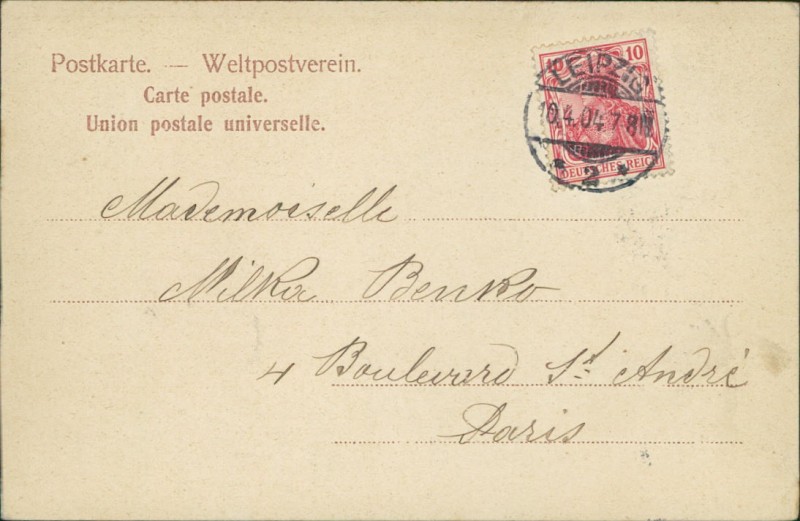 Postkarte. — Weltpostverein.
Carte postale.
Union postale universelle.
10
LEIPZIG
10.4.04.7-8N
* 2 *
DEUTSCHES REICH
Mademoiselle
Milka Benko
4 Boulevard St. André
Paris